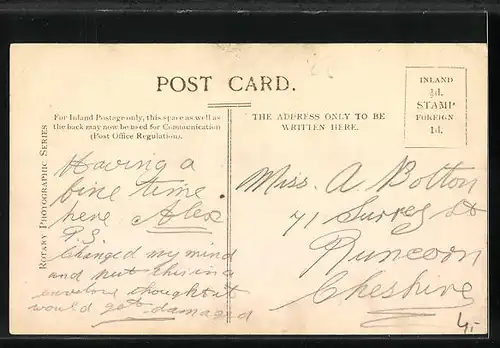 POST CARD.
For Inland Postage only, this space as well as
the back may now be used for Communication
(Post Office Regulation).
THE ADDRESS ONLY TO BE
WRITTEN HERE.
INLAND
½d.
STAMP
FOREIGN
1d.
ROTARY PHOTOGRAPHIC SERIES
Having a
fine time
here Alex
P.S.
Changed my mind
and put this in a
envelope thought it
would get damaged
Miss. A Bolton
71 Surrey St
Runcorn
Cheshire
4,-